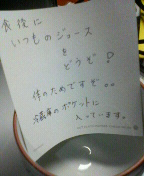 食後に
いつものジュース
を
どうぞ!
体のためですぞ。。
冷蔵庫のポケットに
入っています。